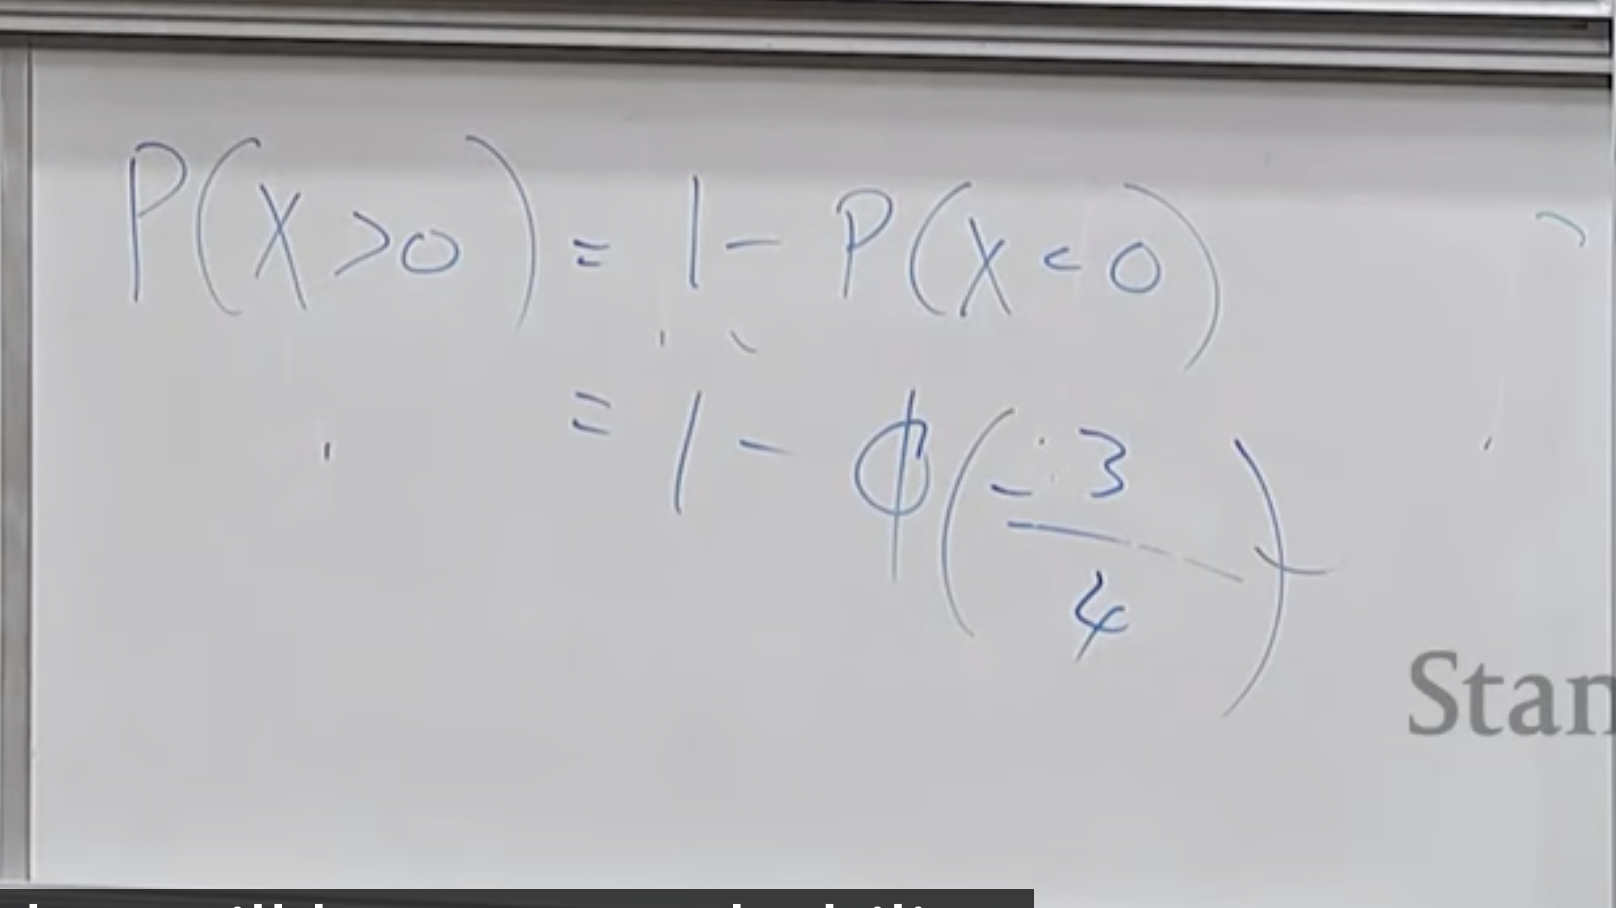 P(X>0) = 1 - P(X<0)
= 1 - Φ(-3/4)
Stan